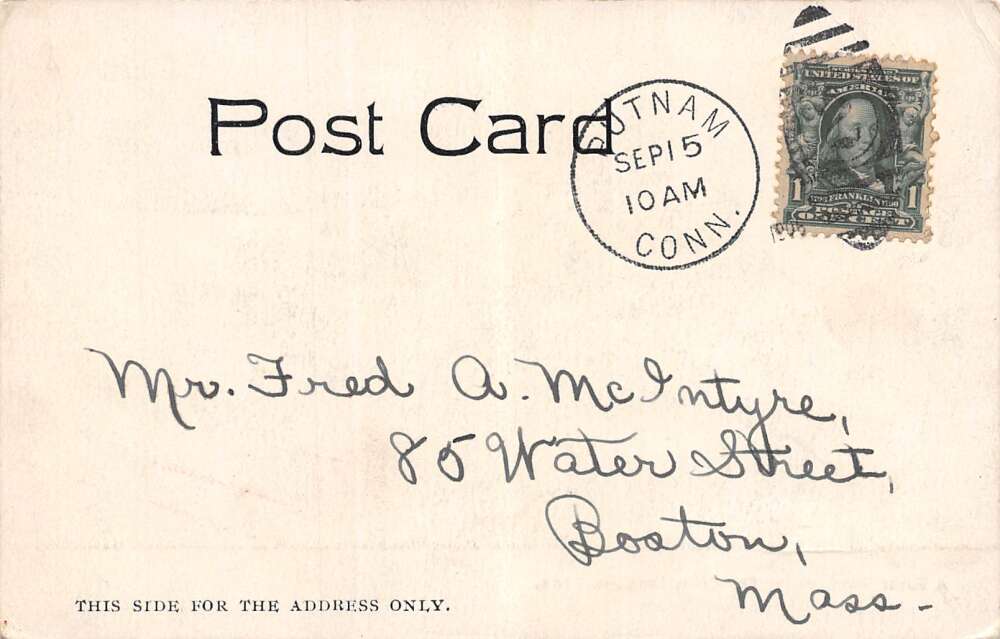 Post Card
PUTNAM
SEP 15
10 AM
CONN.
1906
UNITED STATES OF
AMERICA
FRANKLIN
1 POSTAGE 1
ONE CENT
Mr. Fred A. McIntyre,
85 Water Street,
Boston,
Mass.
THIS SIDE FOR THE ADDRESS ONLY.